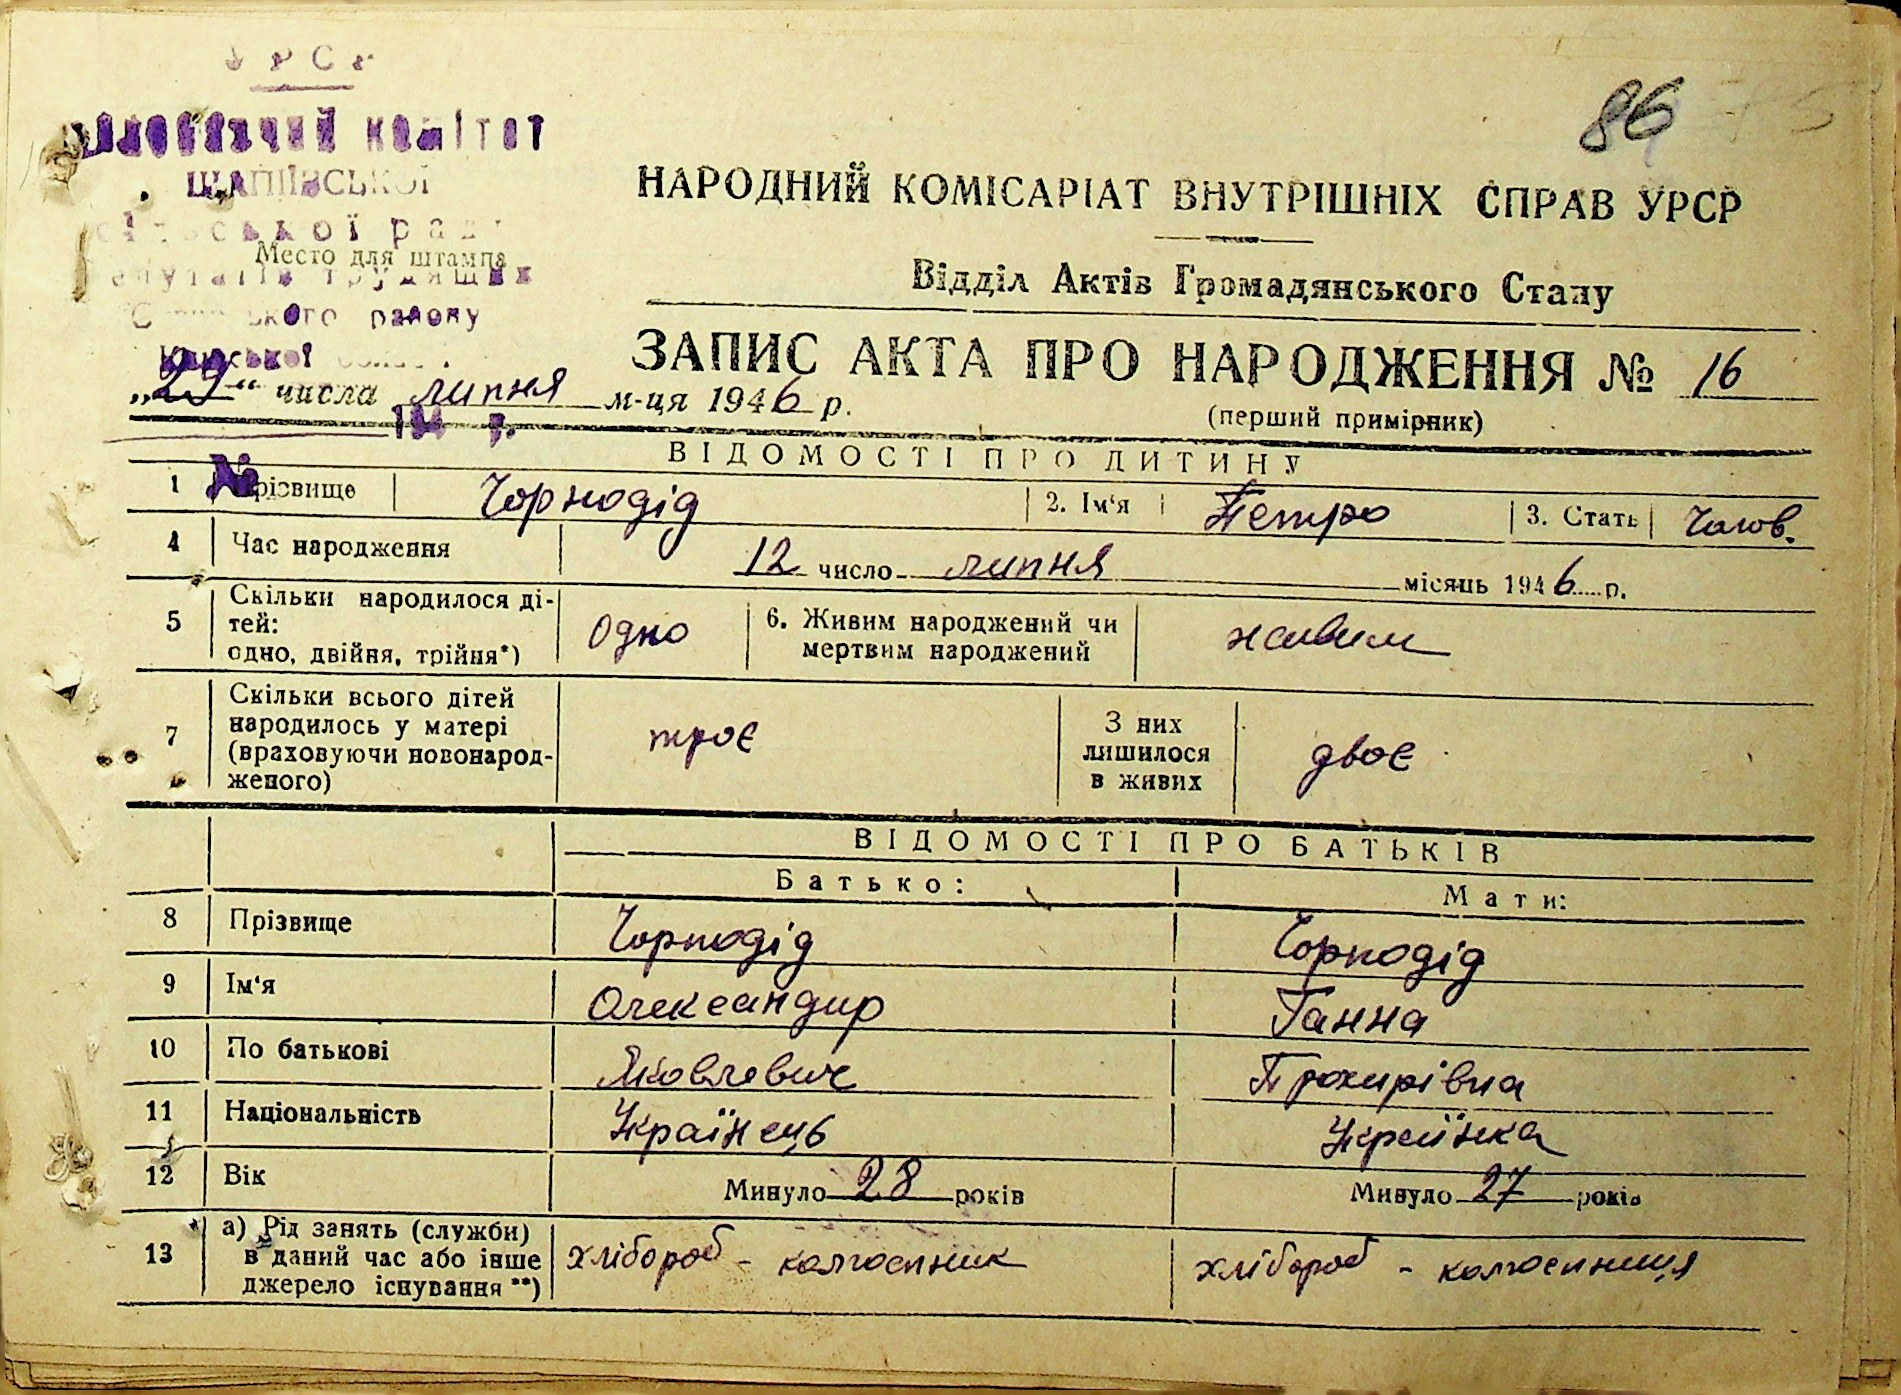 УРСР
86
виконавчий комітет
ЩАПІЇВСЬКОЇ
сільської ради
Место для штампа
депутатів трудящих
ського району
Київської
НАРОДНИЙ КОМІСАРІАТ ВНУТРІШНІХ СПРАВ УРСР
Відділ Актів Громадянського Стану
ЗАПИС АКТА ПРО НАРОДЖЕННЯ № 16
(перший примірник)
„29“ числа липня м-ця 1946 р.
194 р.
№
ВІДОМОСТІ ПРО ДИТИНУ
1 Прізвище Чорнодід 2. Ім‘я Петро 3. Стать Чолов.
4 Час народження 12 число липня місяць 1946 р.
5 Скільки народилося ді-
тей:
одно, двійня, трійня*) одно 6. Живим народжений чи
мертвим народжений живим
7 Скільки всього дітей
народилось у матері
(враховуючи новонарод-
женого) троє З них
лишилося
в живих двоє
ВІДОМОСТІ ПРО БАТЬКІВ
Батько: Мати:
8 Прізвище Чорнодід Чорнодід
9 Ім‘я Олександир Ганна
10 По батькові Яковлевич Прохирівна
11 Національність Українець Українка
12 Вік Минуло 28 років Минуло 27 років
13 а) Рід занять (служби)
в даний час або інше
джерело існування **) хлібороб - колгоспник хлібороб - колгоспниця